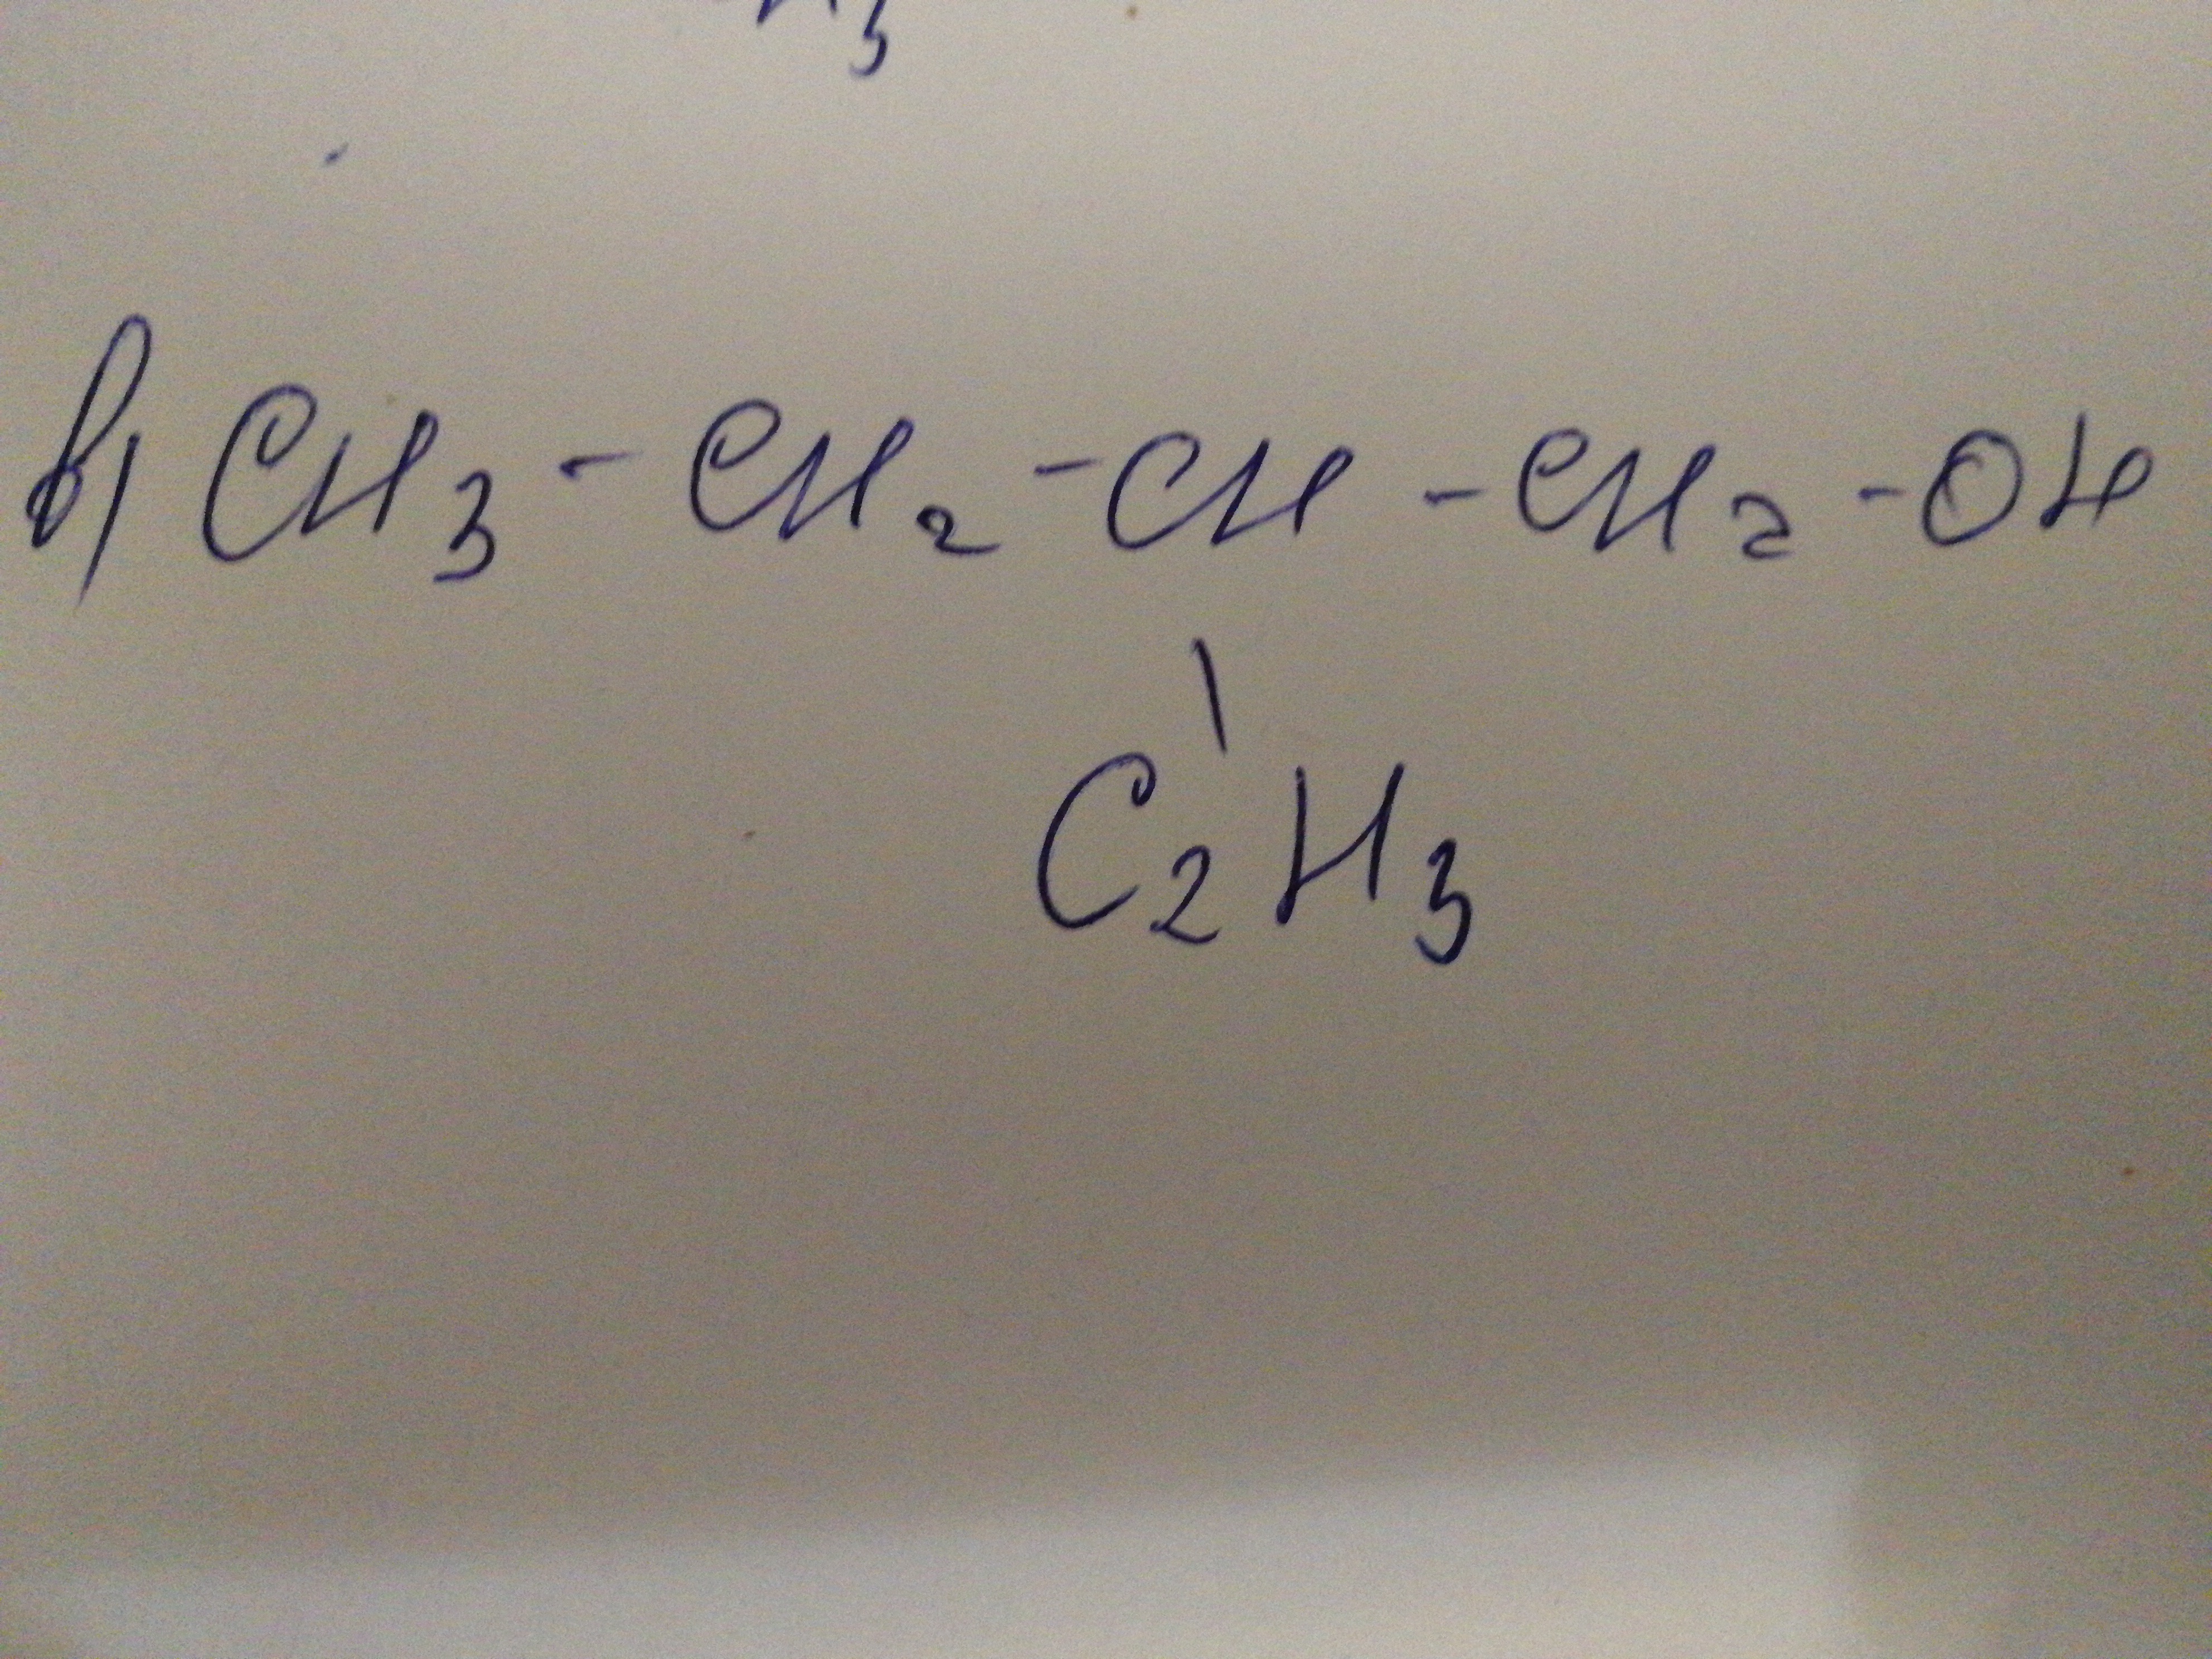 в) CH₃ - CH₂ - CH - CH₂ - OH
C₂H₃